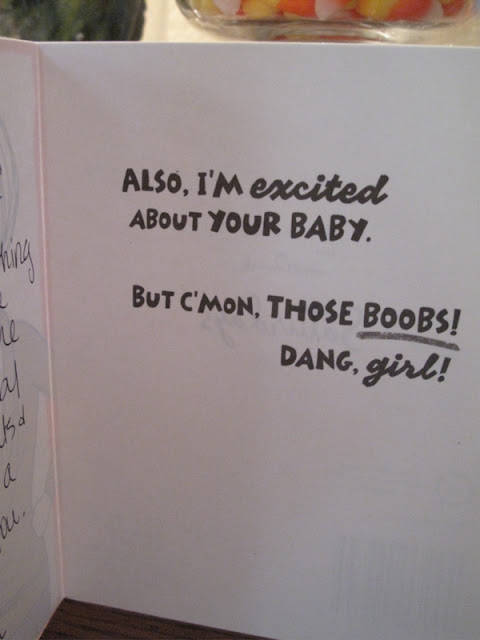 hing
a
ou.
ALSO, I'M excited
ABOUT YOUR BABY.
BUT C'MON, THOSE BOOBS!
DANG, girl!